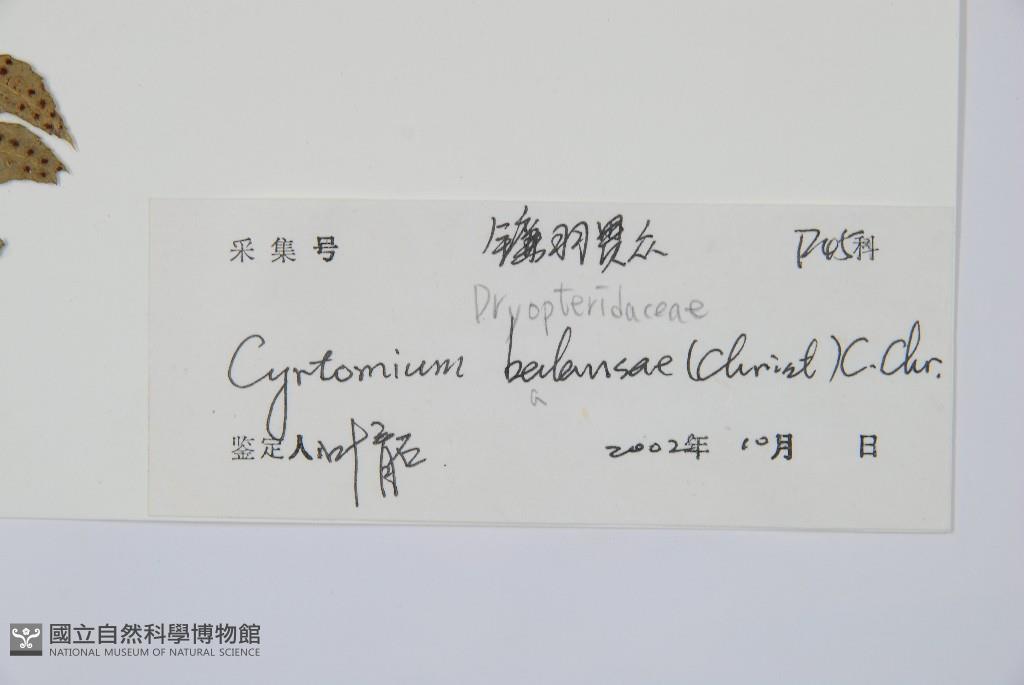 采集号 镰羽贯众 P45科
Dryopteridaceae
Cyrtomium balansae (Christ) C. Chr.
a
鉴定人 叶
2002年 10月 日
國立自然科學博物館
NATIONAL MUSEUM OF NATURAL SCIENCE